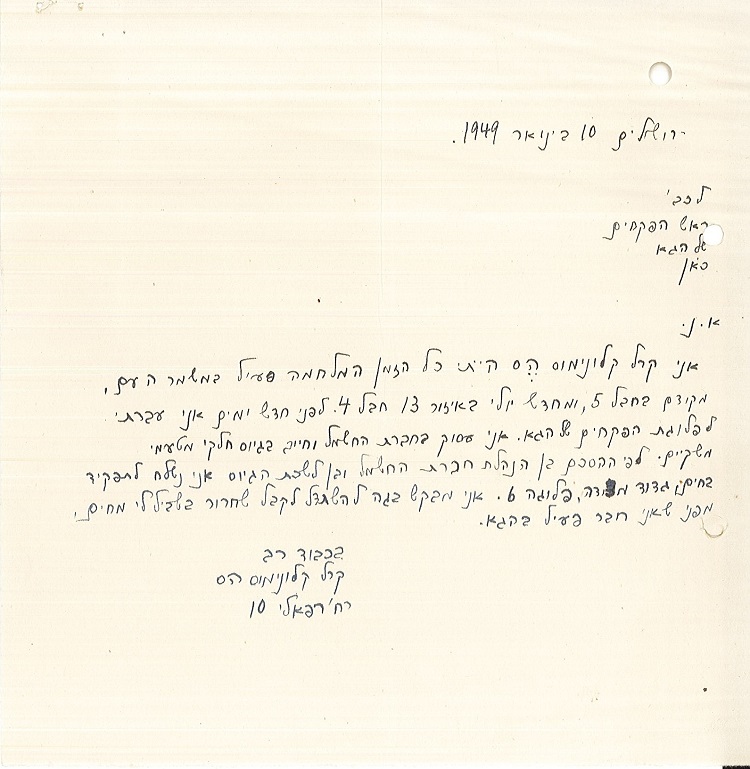 ירושלים 10 בינואר 1949.
לכב'
ראש הפקחים
של הגא
כאן
א.נ.
אני קרל קלונימוס הס הייתי כל הזמן המלחמה פעיל במשמר העם,
מקודם בחבל 5, ומחדש יולי באיזור 13 חבל 4. לפני חדש ימים אני עברתי
לפלוגת הפקחים של הגא. אני עסוק בחברת החשמל וחייב בגיוס חלקי מטעמי
משקיים. לפי ההסכם בן הנהלת חברת החשמל ובן לשכת הגיוס אני נשלח לתפקיד
בחים, גדוד פלוגה 6. אני מבקש בגה להשתדל לקבל שחרור בשבילי מחים,
מפני שאני חבר פעיל בהגא.
בכבוד רב
קרל קלונימוס הס
רח' רפאלי 10